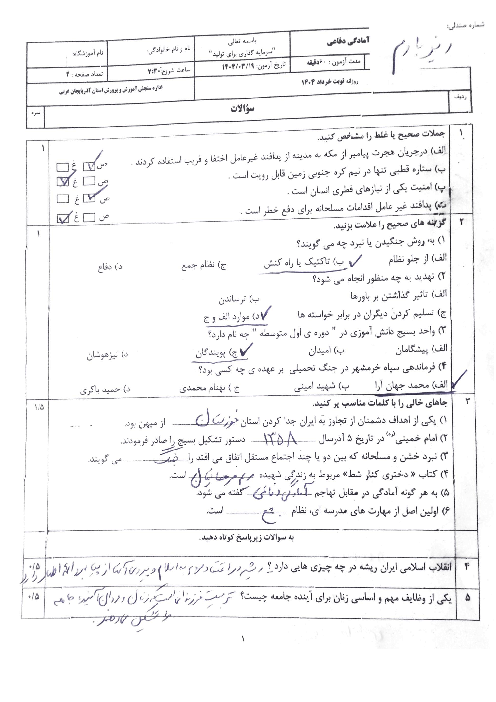 شماره صندلی:
آمادگی دفاعی
باسمه تعالی
نام و نام خانوادگی:
نام آموزشگاه:
"سرمایه گذاری برای تولید"
مدت آزمون: ۶۰دقیقه
تاریخ آزمون: ۱۴۰۴/۰۳/۱۹
ساعت شروع:۷:۳۰
تعداد صفحه : ۲
نوبت خرداد ۱۴۰۴
اداره سنجش آموزش و پرورش استان آذربایجان غربی
ردیف
سؤالات
۱ جملات صحیح یا غلط را مشخص کنید. ۱
الف) درجریان هجرت پیامبر از مکه به مدینه از پدافند غیرعامل اختفا و فریب استفاده کردند . ص غ
ب) ستاره قطبی تنها در نیم کره جنوبی زمین قابل رویت است . ص غ
پ) امنیت یکی از نیازهای فطری انسان است . ص غ
ت) پدافند غیر عامل اقدامات مسلحانه برای دفع خطر است . ص غ
۲ گزینه های صحیح را علامت بزنید. ۱
۱) به روش جنگیدن یا نبرد چه می گویند؟
الف) از جلو نظام ب) تاکتیک یا راه کنش ج) نظام جمع د) دفاع
۲) تهدید به چه منظور انجام می شود؟
الف) تاثیر گذاشتن بر باورها ب) ترساندن
ج) تسلیم کردن دیگران در برابر خواسته ها د) موارد الف و ج
۳) واحد بسیج دانش آموزی در " دوره ی اول متوسطه " چه نام دارد؟
الف) پیشگامان ب) امیدان ج) پویندگان د) تیزهوشان
۴) فرماندهی سپاه خرمشهر در جنگ تحمیلی بر عهده ی چه کسی بود؟
الف) محمد جهان آرا ب) شهید امینی ج ) بهنام محمدی د) حمید باکری
۳ جاهای خالی را با کلمات مناسب پر کنید. ۱.۵
۱) یکی از اهداف دشمنان از تجاوز به ایران جدا کردن استان خوزستان از میهن بود.
۲) امام خمینی(ره) در تاریخ ۵ آذرسال ۱۳۵۸ دستور تشکیل بسیج را صادر فرمودند.
۳) نبرد خشن و مسلحانه که بین دو یا چند اجتماع مستقل اتفاق می افتد را جنگ می گویند.
۴) کتاب « دختری کنار شط» مربوط به زندگی شهیده مریم فرهانیان است.
۵) به هر گونه آمادگی در مقابل تهاجم آمادگی دفاعی گفته می شود
۶) اولین اصل از مهارت های مدرسه ای، نظام جمع است.
به سوالات زیرپاسخ کوتاه دهید.
۴ انقلاب اسلامی ایران ریشه در چه چیزی هایی دارد؟ ۰/۵
۵ یکی از وظایف مهم و اساسی زنان برای آینده جامعه چیست؟ تربیت ۰/۵
۱